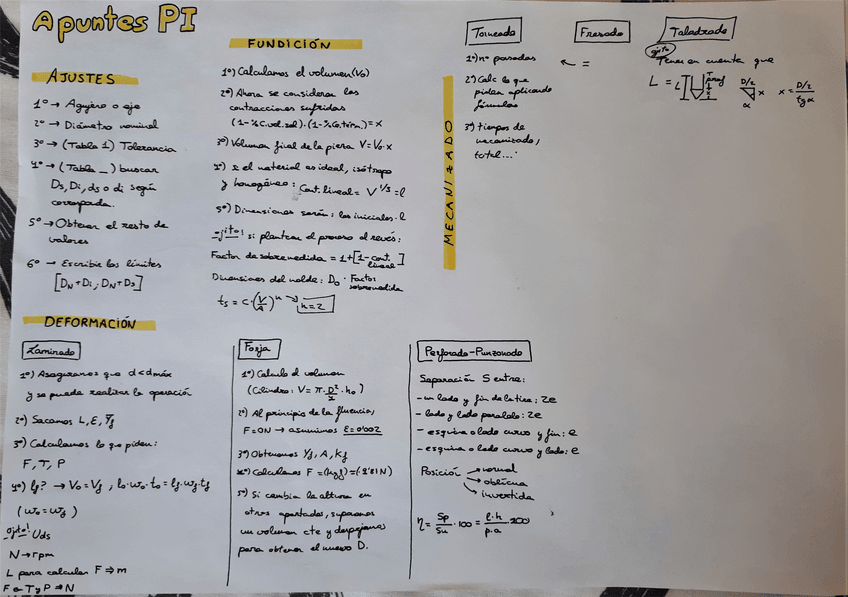 Apuntes PI
AJUSTES
1º → Agujero o eje
2º → Diámetro nominal
3º → (Tabla 1) Tolerancia
4º → (Tabla _) buscar
Ds, Di, ds o di según
corresponda.
5º → Obtener el resto de
valores
6º → Escribir los límites
[DN + Di, DN + Ds]
FUNDICIÓN
1º) Calculamos el volumen (Vo)
2º) Ahora se consideran las
contracciones sufridas
(1-%C.vol.sol)·(1-%Co.térm.) = x
3º) Volumen final de la pieza V = Vo·x
4º) si el material es ideal, isótropo
y homogéneo: Cont. lineal = V^1/3 = l
5º) Dimensiones serán: las iniciales·l
¡ojito! si plantean el proceso al revés:
Factor de sobremedida = 1+[1-cont. lineal]
Dimensiones del molde: Do · Factor sobremedida
ts = C·(V/A)^n → n=2
MECANIZADO
Torneado
1º) nº pasadas
2º) Calc lo que
pidan aplicando
fórmulas
3º) tiempos de
mecanizado,
total...
Fresado
← =
Taladrado
ojito
Tener en cuenta que
L = L prof x
D/2 x α
x = D/2 / tg α
DEFORMACIÓN
Laminado
1º) Aseguramos que d < dmáx
y se puede realizar la operación
2º) Sacamos L, E, Ȳf
3º) Calculamos lo que piden:
F, T, P
4º) lf? → Vo = Vf, lo·wo·to = lf·wf·tf
(wo = wf)
ojito! Uds
N → rpm
L para calcular F ⇒ m
F en T y P ⇒ N
Forja
1º) Calculo el volumen
(Cilindro: V = π·D²/2·ho)
2º) Al principio de la fluencia,
F = 0N → asumimos E = 0'002
3º) Obtenemos Yf, A, Kf
4º) Calculamos F = (kgf) = (9'81N)
5º) Si cambia la altura en
otros apartados, suponemos
un volumen cte y despejamos
para obtener el nuevo D.
Perforado-Punzonado
Separación S entre:
- un lado y fin de la tira: 2e
- lado y lado paralelo: 2e
- esquina o lado curvo y fin: e
- esquina o lado curvo y lado: e
Posición → normal
→ oblicua
→ invertida
η = Sp/Su · 100 = l·h/p·a · 100